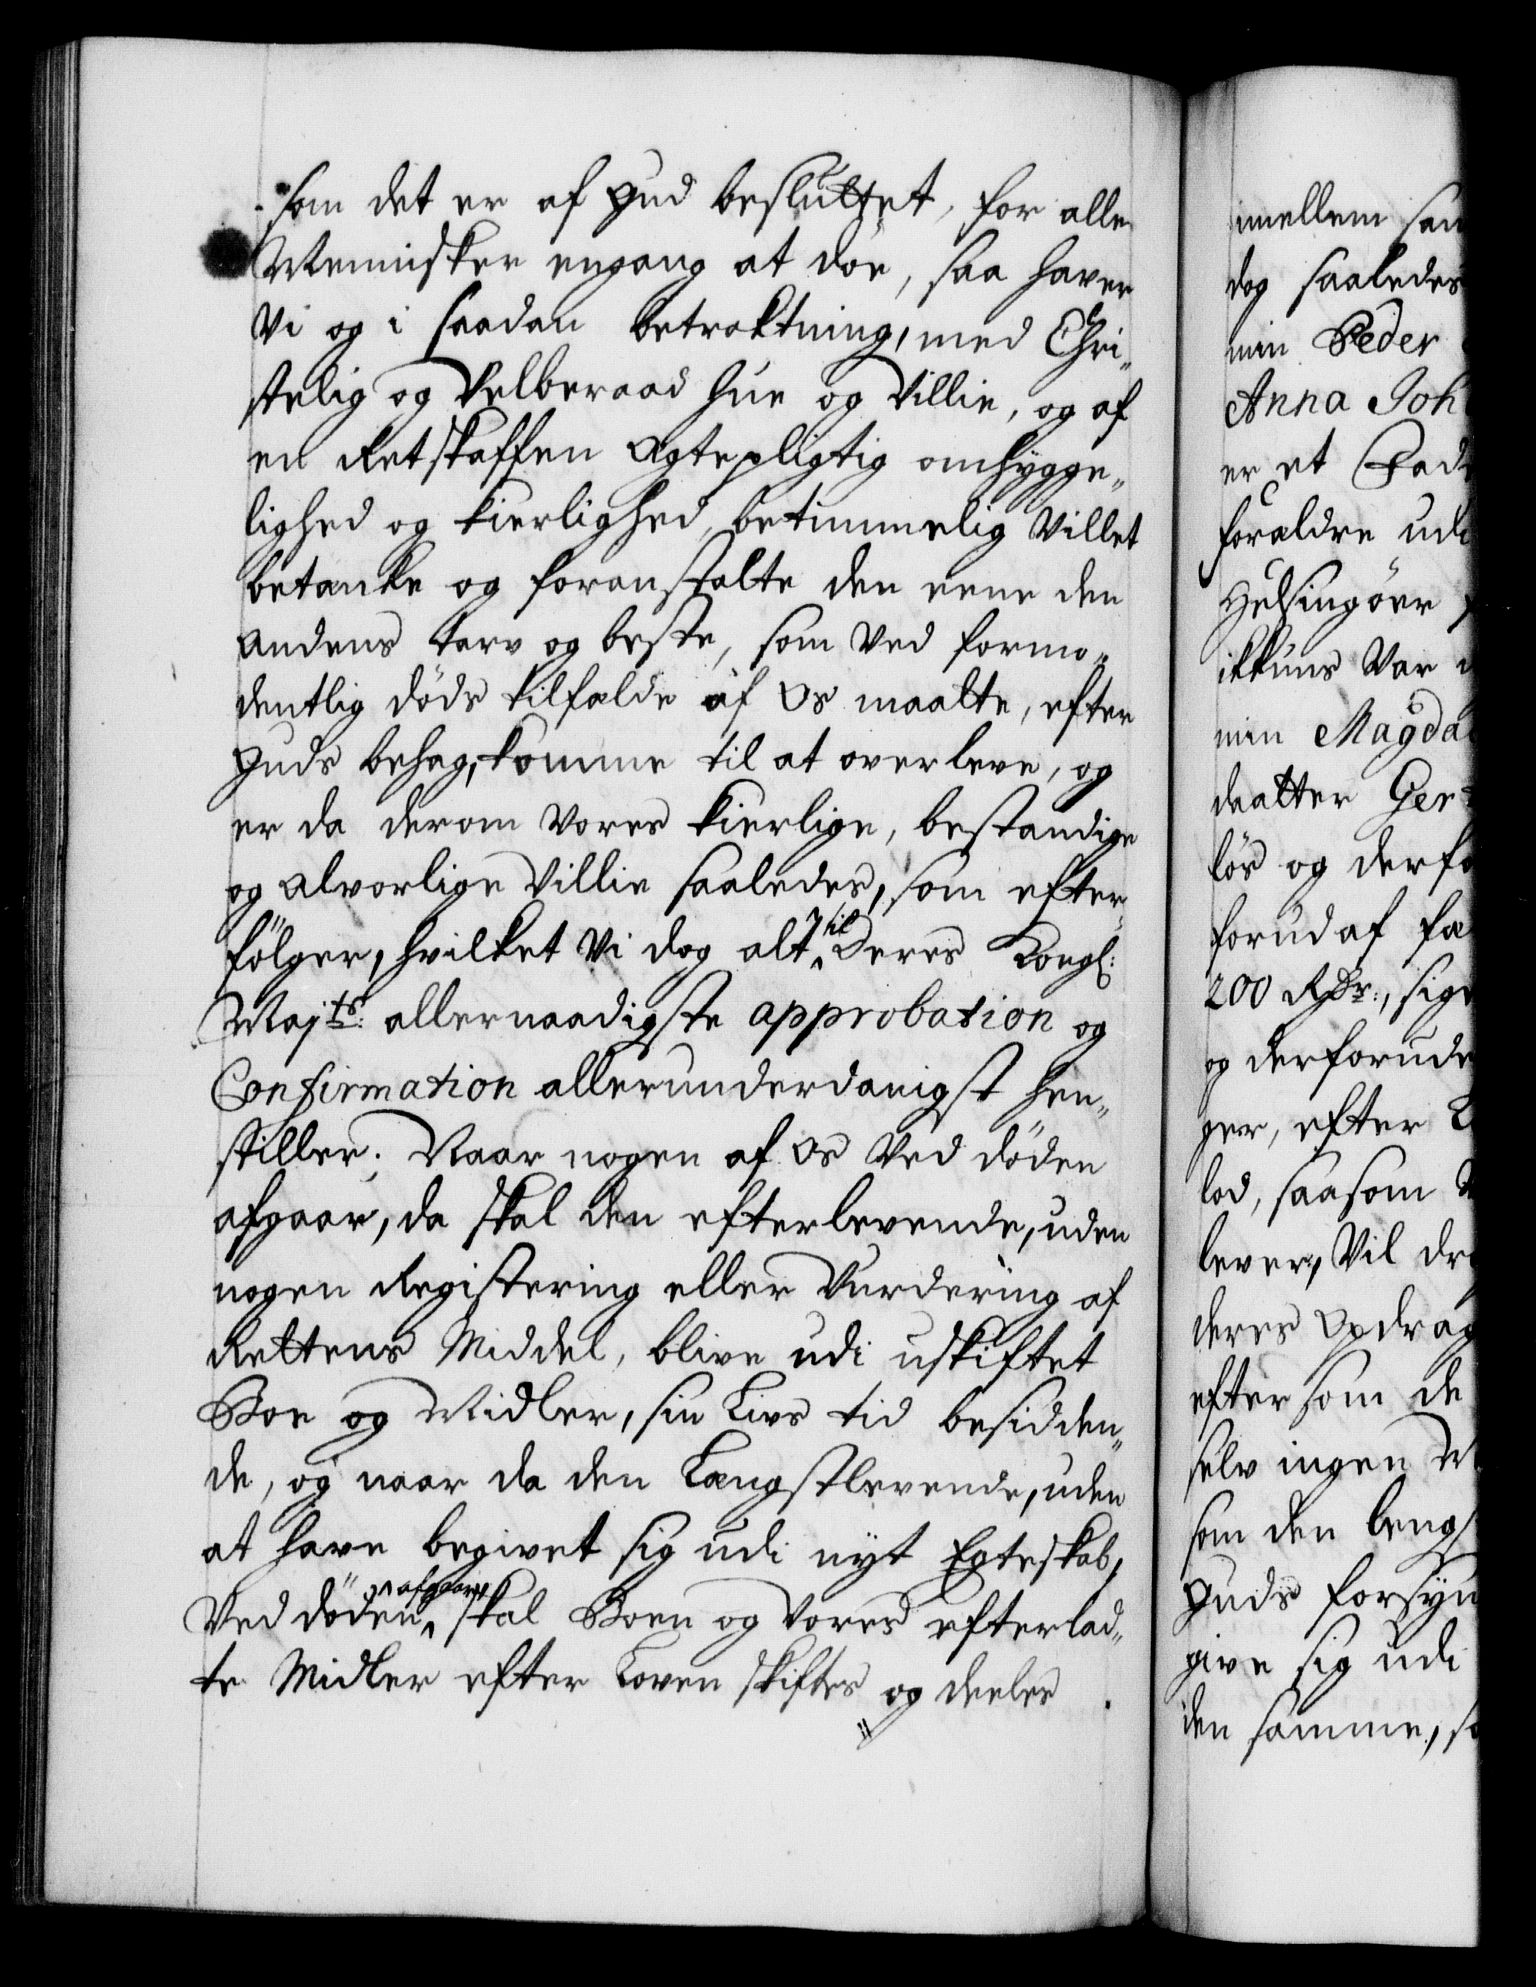 som det er af Gud besluttet, for alle
Mennisker engang at döe, saa haver
Vi og i saadan betragtning, med Chri„
stelig og Velberaad hue og Villie, og af
en Retskaffen Agtepligtig omhygge„
lighed og kierlighed, betimmelig Villet
betænke og foranstalte den eene den
andens tarv og beste, som Ved formo„
dentlig döds tilfælde af Os maatte, efter
Guds behag, komme til at overleve, og
er da derom Vores kierlige, bestandige
og alvorlige Villie saaledes, som efter„
fölger, hvilket Vi dog alt til Deres Kongl:
Majts: allernaadigste approbation og
Confirmation allerunderdanigst hen„
stiller. Naar nogen af Os Ved döden
afgaar, da skal den efterlevende, uden
nogen Registering eller Vurdering af
Rettens Middel, blive udi uskiftet
Boe og Midler, sin Livs tid besidden„
de, og naar da den Længstlevende, uden
at have begivet sig udi nyt Egteskab,
Ved döden afgaar, skal Boen og Vores efterlad„
te Midler efter Loven skiftes og deeles
imellem saa
dog saaledes
min Peder
Anna Joh
er et Fad
forældre udi
Helsingöer
ikkuns Var
min Magda
daatter Ger
lös og derfo
forud af fæ
200 Rdr:, sige
og derforud
ger, efter L
lod, saasom
lever, Vil dr
deres Opdrag
eftersom de
selv ingen M
som den lengs
Guds forsyn
give sig udi
den samme, s